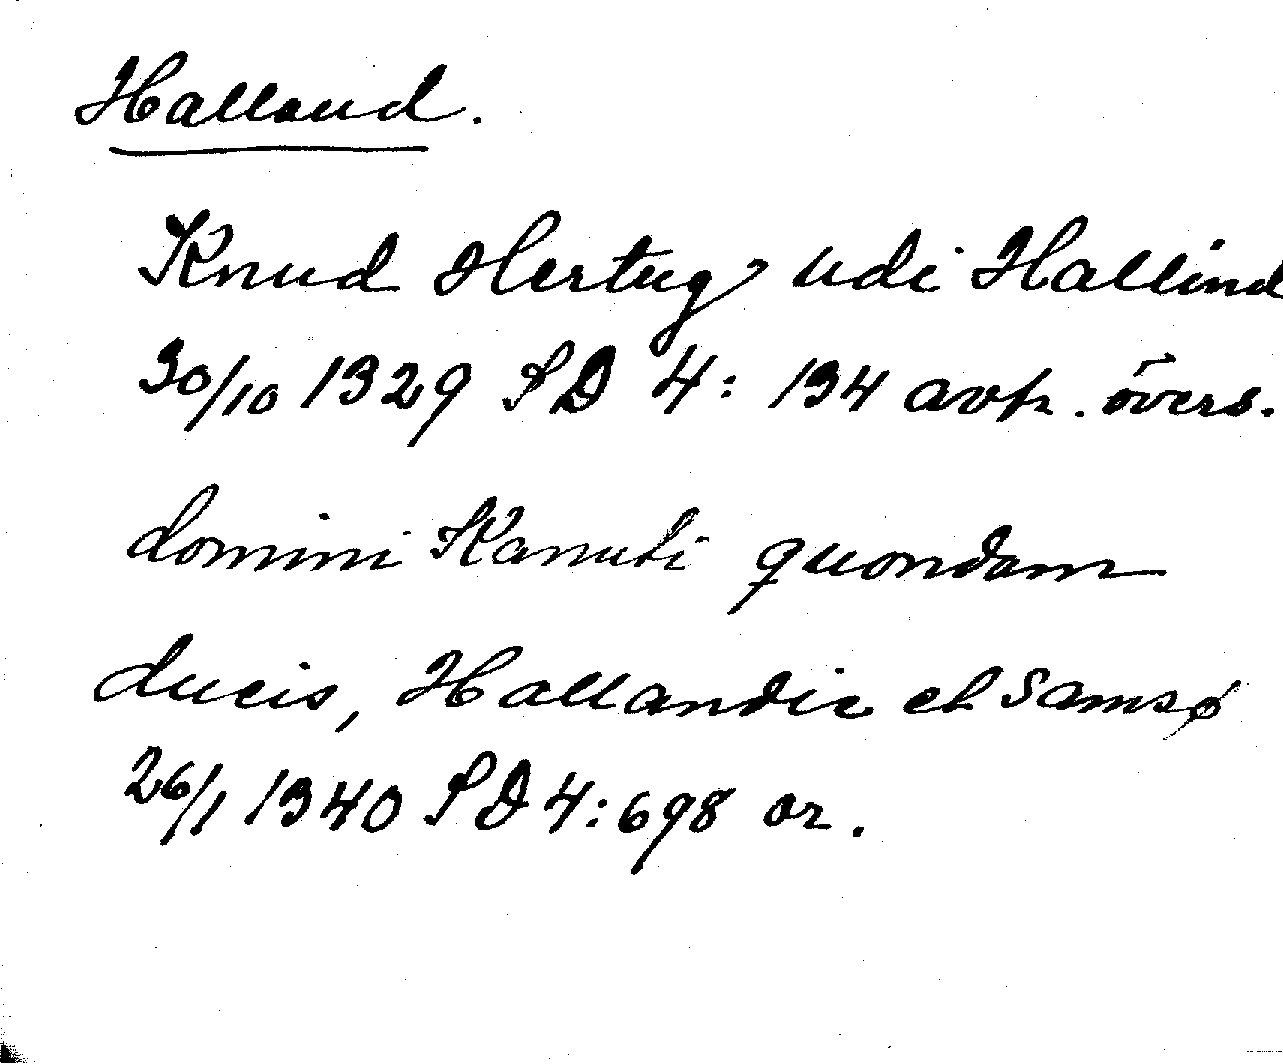 Halland.
Knud Hertug udi Hallind
30/10 1329 SD 4: 134 avskr. övers.
domini Kanuti quondam
ducis, Hallandie et Samsø
26/1 1340 SD 4:698 or.